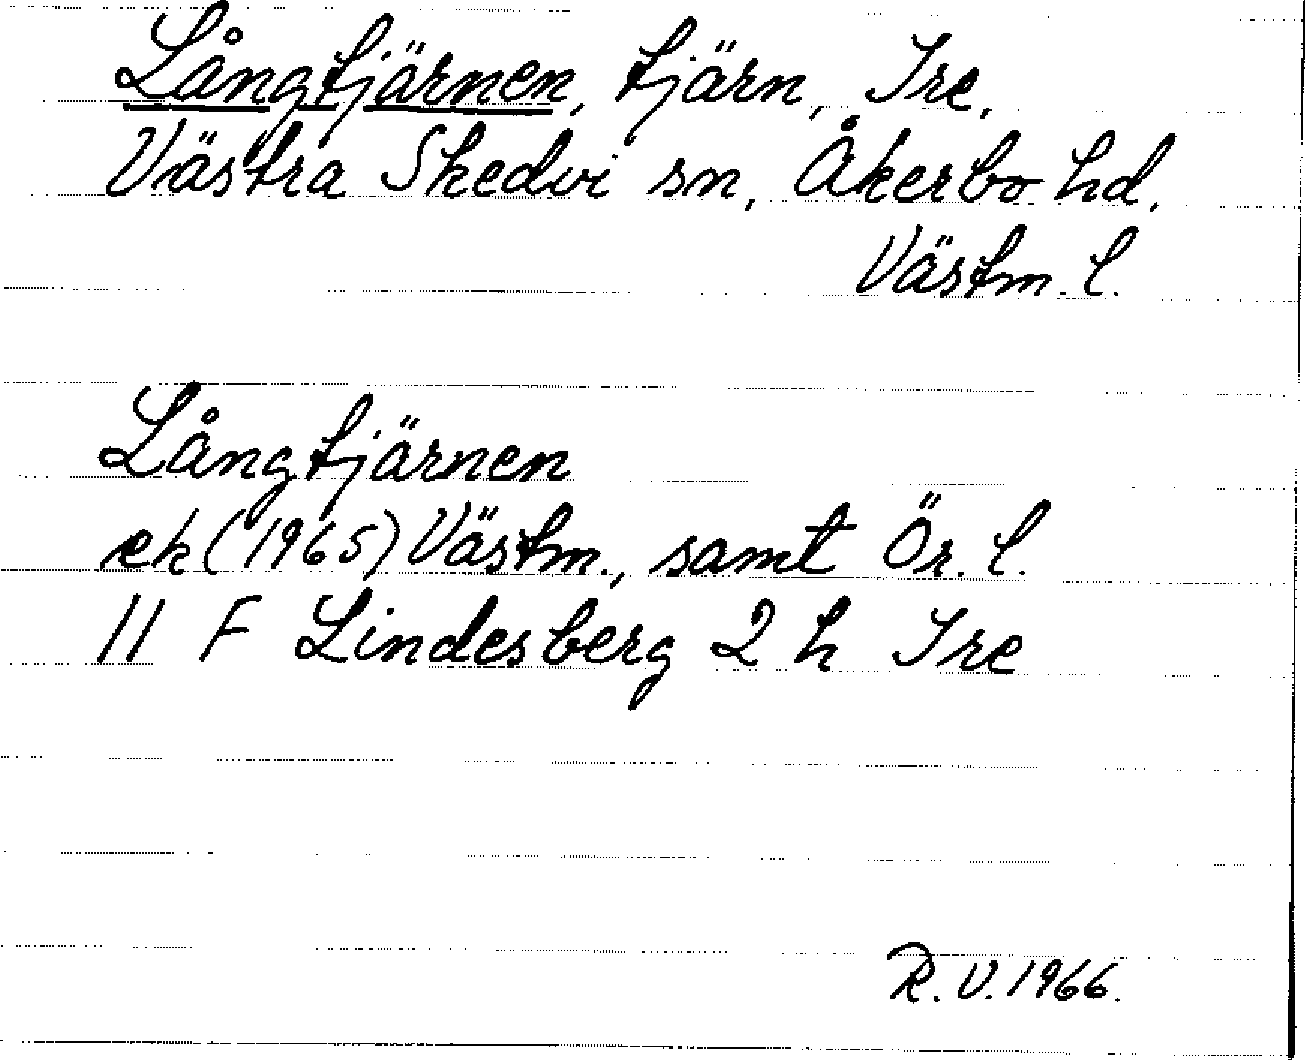 Långtjärnen, tjärn, Ire,
Västra Skedvi sn, Åkerbo hd.
Västm. l.
Långtjärnen
ek (1965) Västm., samt Ör. l.
11 F Lindesberg 2 h Ire
R. V. 1966.